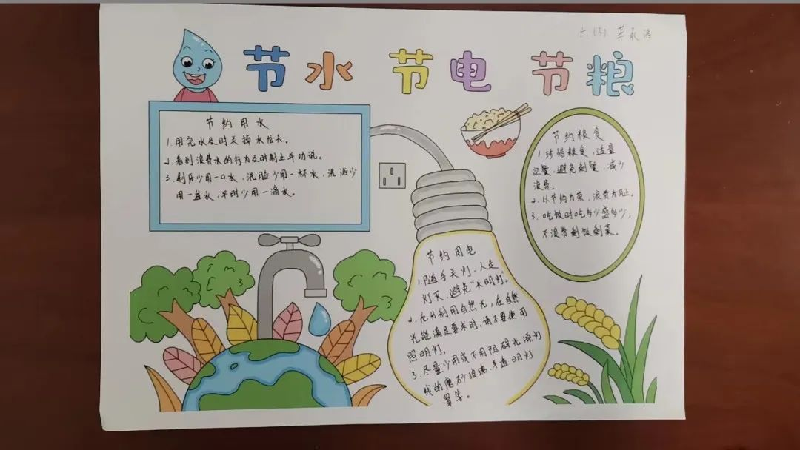 节水 节电 节粮
节约用水
1.用完水及时关掉水龙头。
2.看到浪费水的行为及时制止并劝说。
3.刷牙少用一口水，洗脸少用一杯水，洗浴少
用一盆水，平时少用一滴水。
节约粮食
1.珍惜粮食，适量
定餐，避免剩餐，减少
浪费。
2.以节约为荣，浪费为耻。
3.吃饭时吃多少盛多少，
不浪费剩饭剩菜。
节约用电
1.随手关灯，人走
灯灭，避免"长明灯"。
2.充分利用自然光，在自然
光能满足要求时，请不要使用
照明灯。
3.尽量少用